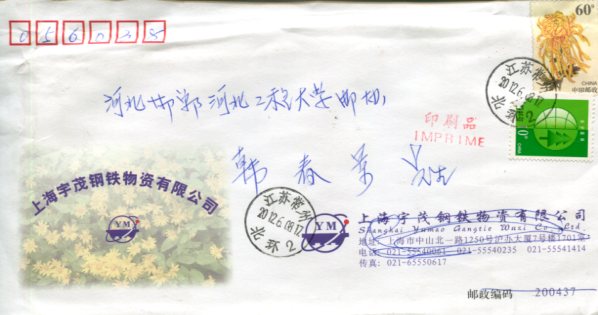 056038
60分
CHINA
中国邮政
江苏常州
2012.6.08.17
CHINA
河北邯郸河北工程大学邯机
印刷品
IMPRIME
韩春景 先生
上海宇茂钢铁物资有限公司
YM
江苏常州
2012.6.08.17
YM
上海宇茂钢铁物资有限公司
Shanghai Yumao Gangtie Wuzi Co., Ltd
地址: 上海市中山北一路1250号沪办大厦7号楼1701室
电话: 021-55540061 021-55540235 021-55541414
传真: 021-65550617
邮政编码 200437